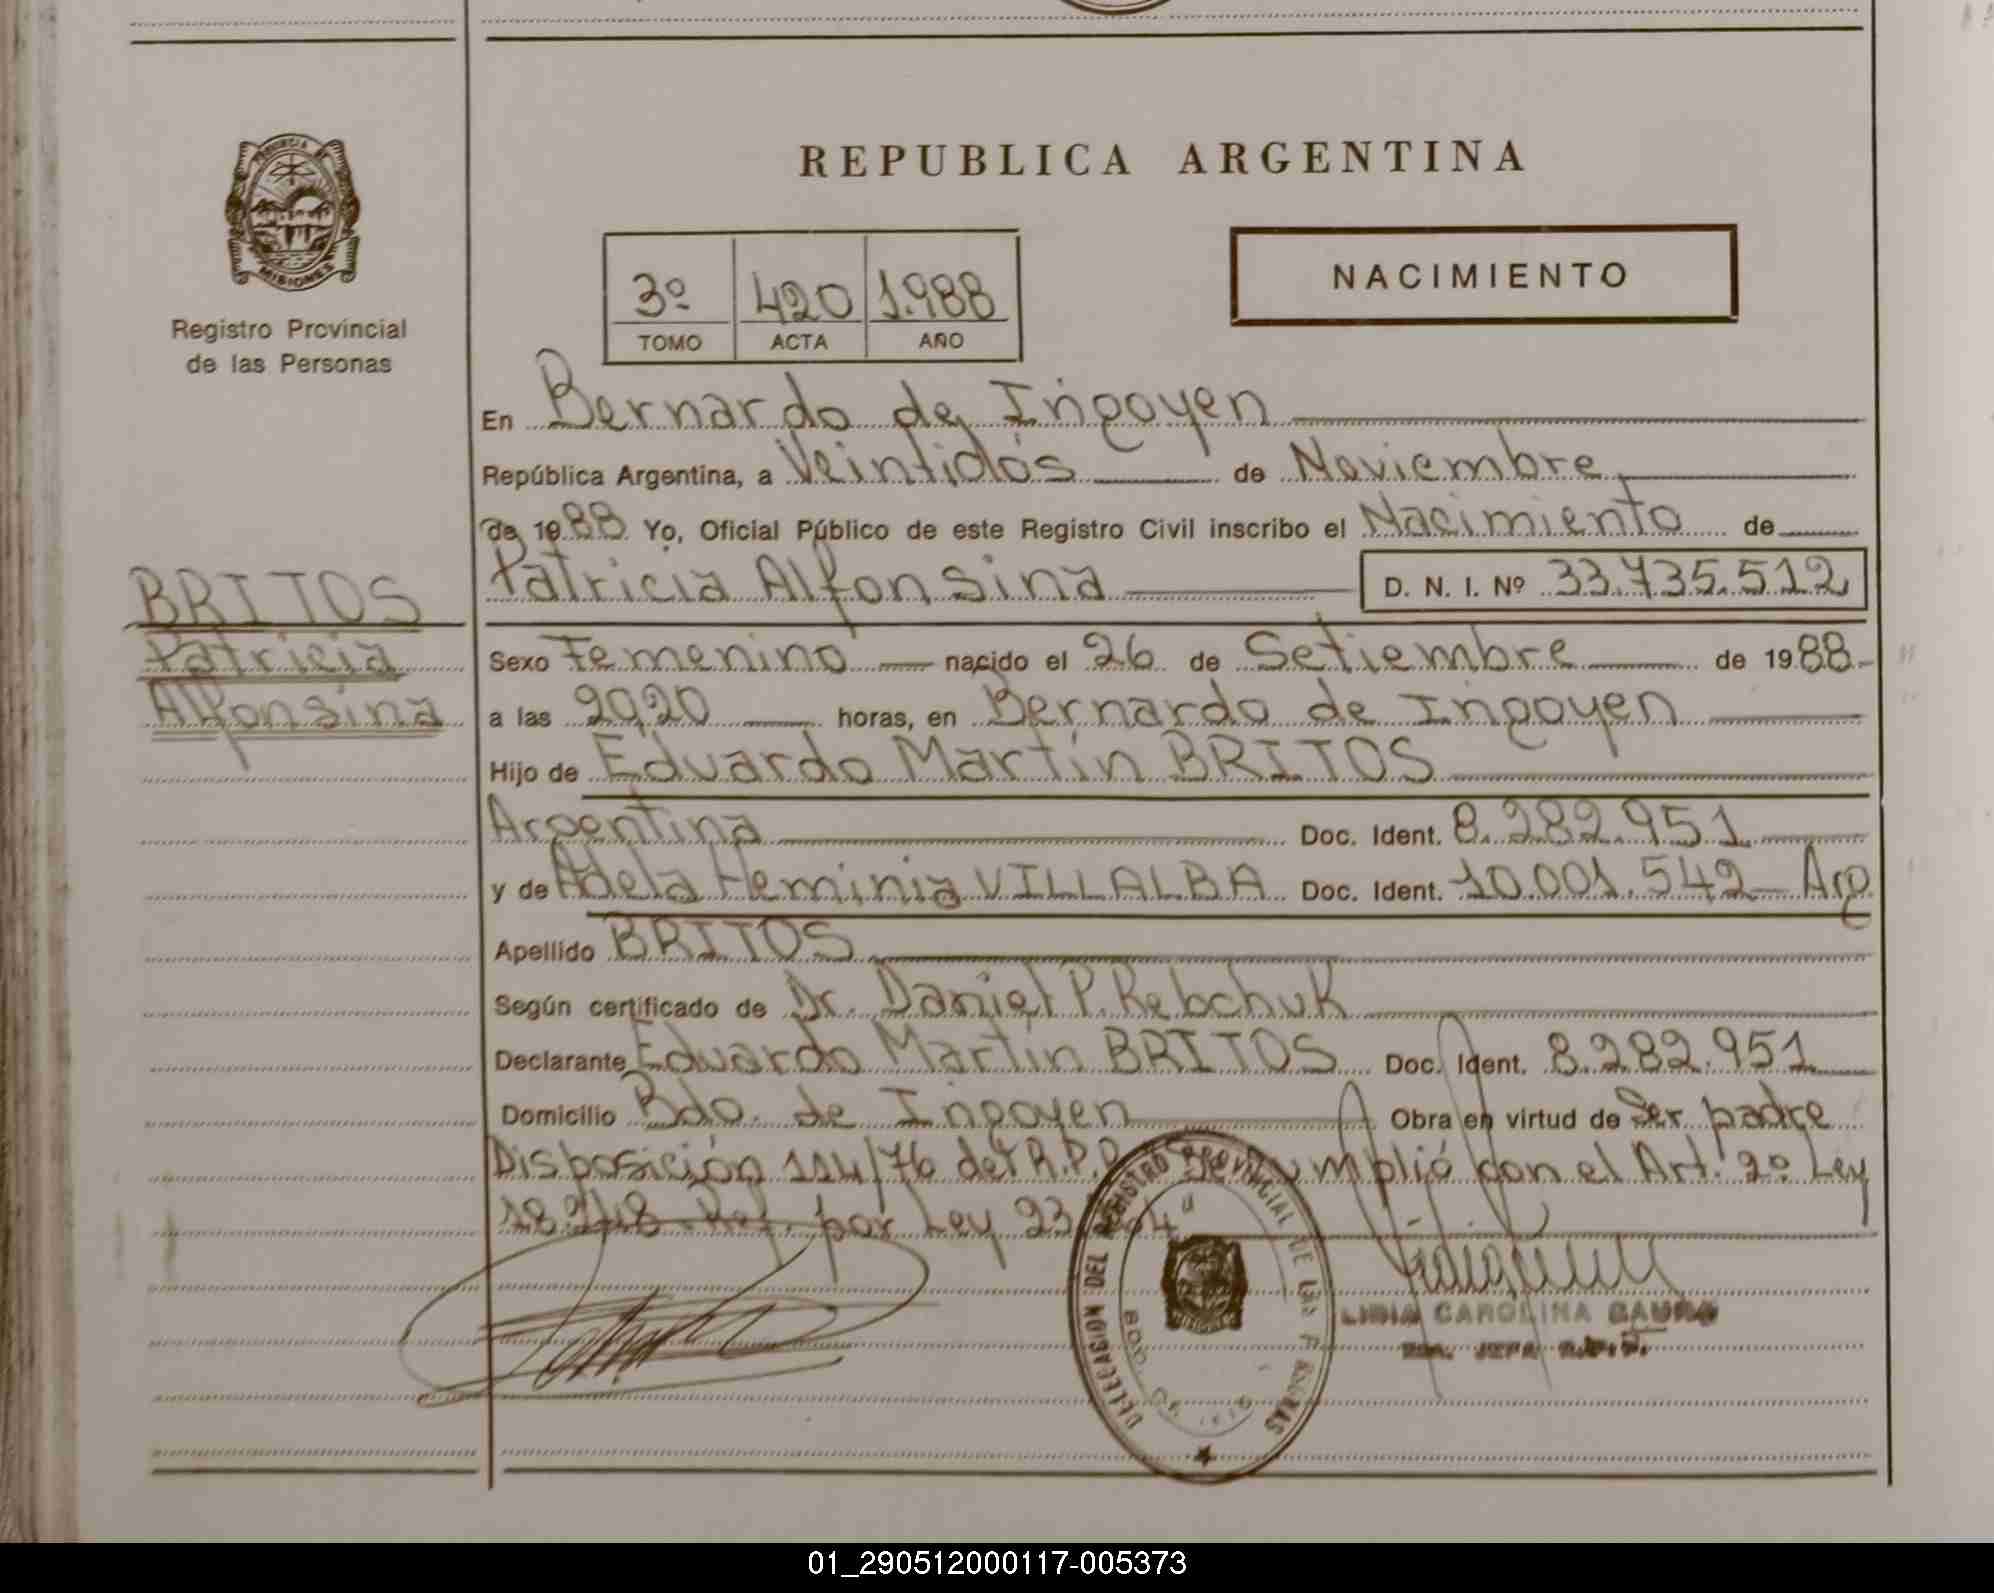 REPUBLICA ARGENTINA
PROVINCIA DE
MISIONES
Registro Provincial
de las Personas
3º 420 1.988
TOMO ACTA AÑO
NACIMIENTO
En Bernardo de Irigoyen
República Argentina, a Veintidós de Noviembre
de 1988 Yo, Oficial Público de este Registro Civil inscribo el Nacimiento de
Patricia Alfonsina D. N. I. Nº 33.735.512
BRITOS
Patricia
Alfonsina
Sexo Femenino nacido el 26 de Setiembre de 1988
a las 20,20 horas, en Bernardo de Irigoyen
Hijo de Eduardo Martín BRITOS
Argentina Doc. Ident. 8.282.951
y de Adela Herminia VILLALBA Doc. Ident. 10.001.542 Arg
Apellido BRITOS
Según certificado de Dr. Daniel P. Rebchuk
Declarante Eduardo Martín BRITOS Doc. Ident. 8.282.951
Domicilio Bdo. de Irigoyen Obra en virtud de Ser padre
Disposición 114/76 del R.P.P. Se cumplió con el Art. 2º Ley
18.248 Ref. por Ley 23
DELEGACION DEL REGISTRO PROVINCIAL DE LAS PERSONAS
BDO. DE IRIG
LIDIA CAROLINA
JEFA
01_290512000117-005373